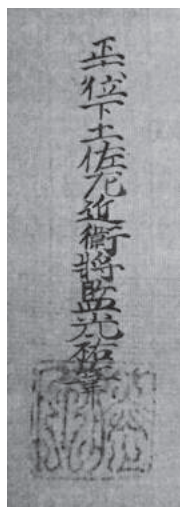 正六位下土佐左近衛将監光祐筆